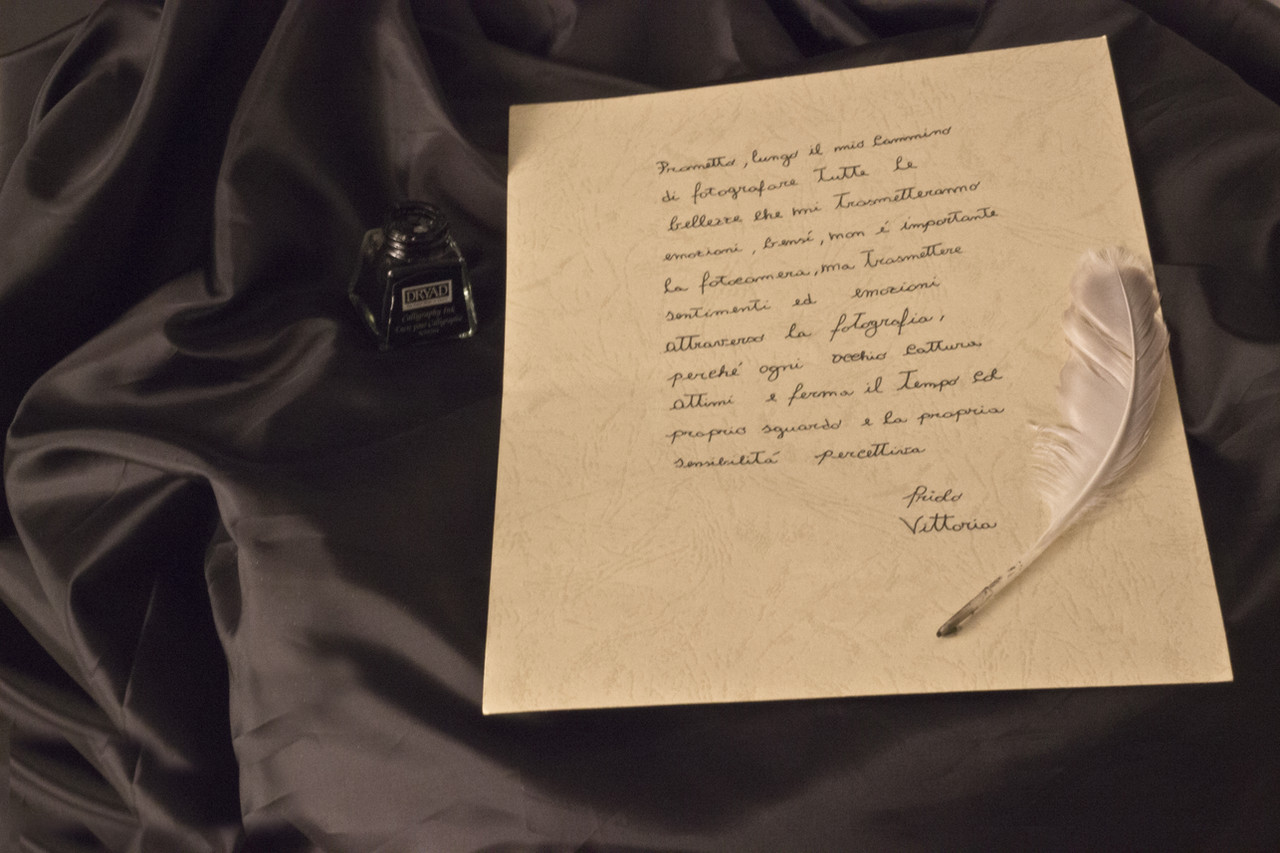 DRYAD
Calligraphy Ink
Prometto, lungo il mio cammino
di fotografare tutte le
bellezze che mi trasmetteranno
emozioni, bensí, non é importante
la fotocamera, ma trasmettere
sentimenti ed emozioni
attraverso la fotografia,
perché ogni occhio cattura
attimi e ferma il tempo col
proprio sguardo e la propria
sensibilitá percettiva
Prido
Vittoria